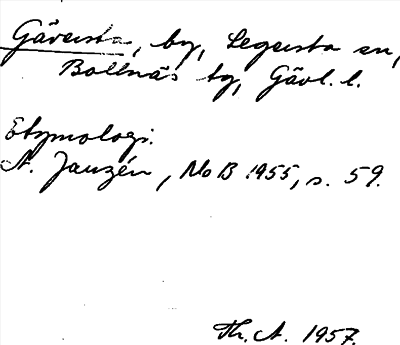 Gäversta, by, Segersta sn,
Bollnäs tg, Gävl. l.
Etymologi.
A. Janzén, NoB 1955, s. 59.
Th. A. 1957.